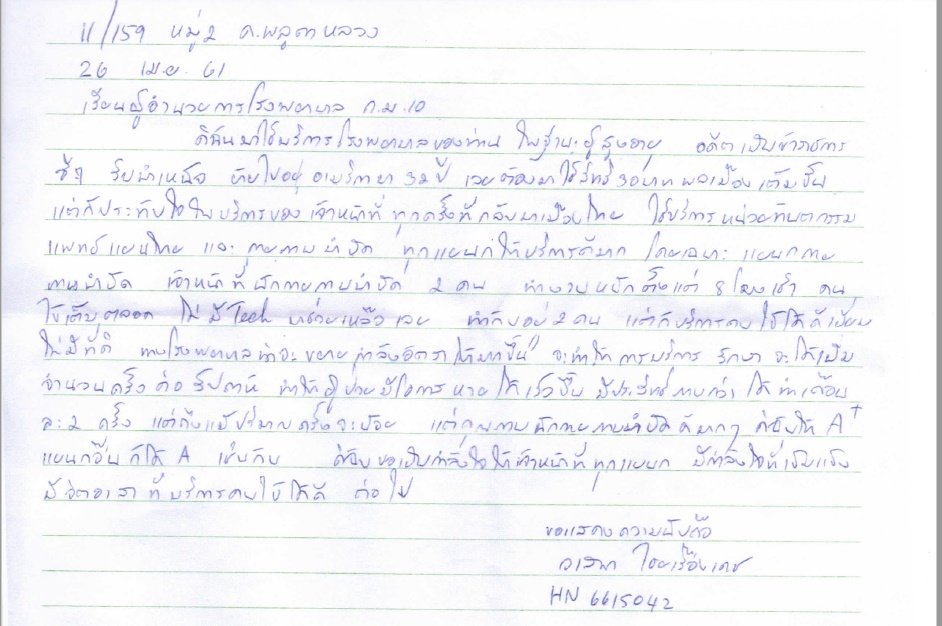 11/159 หมู่ 2 ต.พลูตาหลวง
26 เม.ย. 61
เรียนผู้อำนวยการโรงพยาบาล ก.ม.10
ดิฉันมาใช้บริการโรงพยาบาลของท่าน ในฐานะผู้สูงอายุ อดีตเป็นข้าราชการ
ย้ายไปอยู่ อเมริกามา 32 ปี เลยต้องมาใช้สิทธิ 30 บาท พลเมืองเต็มขั้น
แต่ก็ประทับใจในบริการของ เจ้าหน้าที่ ทุกครั้งที่กลับมาเมืองไทย ใช้บริการหน่วยทันตกรรม
แพทย์แผนไทย และ กายภาพบำบัด ทุกแผนกให้บริการดีมาก โดยเฉพาะ แผนกกาย
ภาพบำบัด เจ้าหน้าที่นักกายภาพบำบัด 2 คน ทำงานหนักตั้งแต่ 8 โมงเช้า คน
ไข้เต็มตลอด ไม่มี Tech มาช่วยเหลือเลย ทำกันอยู่ 2 คน แต่ก็บริการคนไข้ได้ดีเยี่ยม
ไม่มีที่ติ ทางโรงพยาบาลน่าจะขยายกำลังอัตราให้มากขึ้น จะทำให้การบริการ รักษา จะได้เพิ่ม
จำนวนครั้ง ต่อ สัปดาห์ ทำให้ผู้ป่วยมีโอการหายได้เร็วขึ้น มีประสิทธิภาพกว่า ได้ทำเดือน
ละ 2 ครั้ง แต่ถึงแม้ปริมาณครั้งจะน้อย แต่คุณภาพนักกายภาพบำบัดดีมากๆ ดิฉันให้ A+
แผนกอื่นก็ได้ A เช่นกัน ดิฉันขอเป็นกำลังใจให้เจ้าหน้าที่ทุกแผนก มีกำลังใจที่เข้มแข็ง
มีจิตอาสา ที่บริการคนไข้ได้ดี ต่อไป
ขอแสดงความนับถือ
HN 6615042